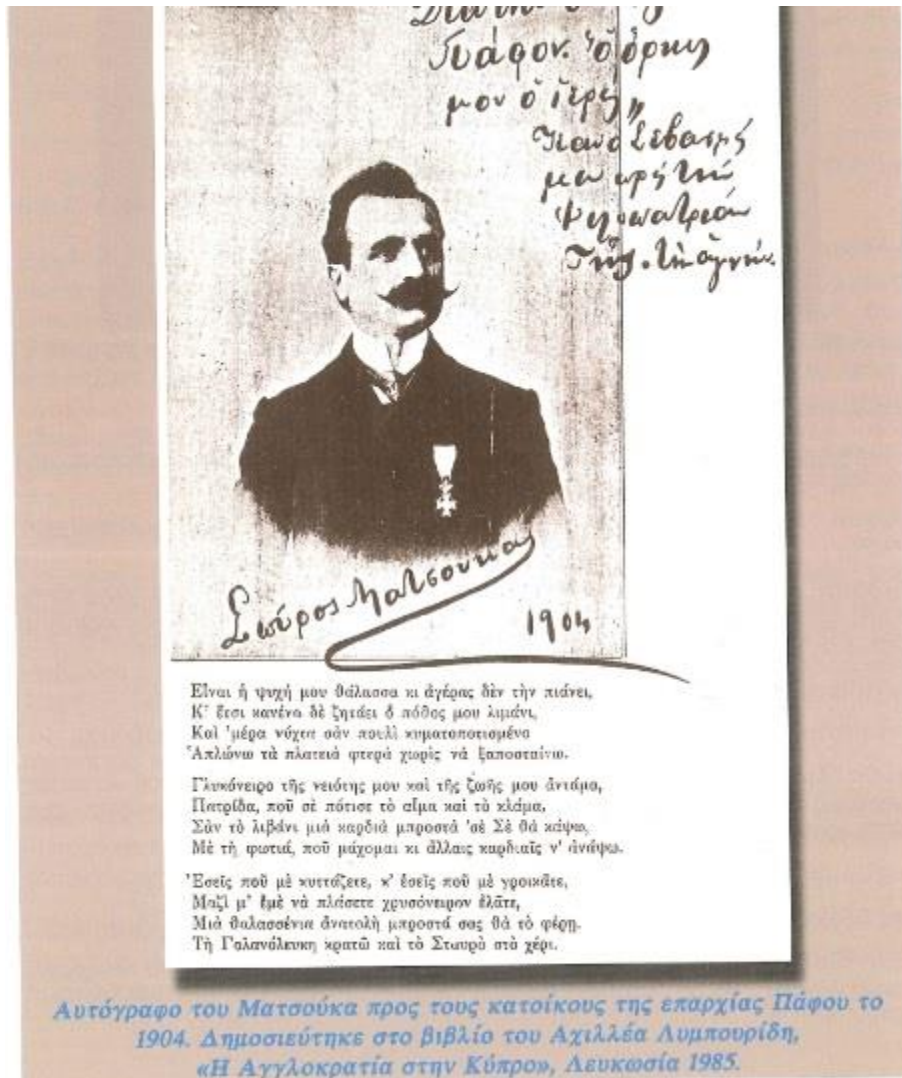 Πάφον. Ὁ ὅρκος
μου ὁ ἱερός"
Σεβασμὸς
μου πρὸς τὴν
Φιλοπατρίαν
Της. Τὴν ἁγνήν.
Σπύρος Ματσούκας
1904
Εἶναι ἡ ψυχή μου θάλασσα κι ἀγέρας δὲν τὴν πιάνει,
Κ' ἔτσι κανένα δὲ ζητάει ὁ πόθος μου λιμάνι,
Καὶ 'μέρα νύχτα σὰν πουλὶ κυματοποτισμένο
Ἁπλώνω τὰ πλατειὰ φτερὰ χωρὶς νὰ ξαποσταίνω.
Γλυκόνειρο τῆς νειότης μου καὶ τῆς ζωῆς μου ἀντάμα,
Πατρίδα, ποῦ σὲ πότισε τὸ αἷμα καὶ τὸ κλάμα,
Σὰν τὸ λιβάνι μιὰ καρδιὰ μπροστὰ 'σὲ Σὲ θὰ κάψω,
Μὲ τὴ φωτιά, ποῦ μάχομαι κι ἄλλαις καρδιαῖς ν' ἀνάψω.
Ἐσεῖς ποῦ μὲ κυττάζετε, κ' ἐσεῖς ποῦ μὲ γροικᾶτε,
Μαζὶ μ' ἐμὲ νὰ πλάσετε χρυσόνειρον ἐλᾶτε,
Μιὰ θαλασσένια ἀνατολὴ μπροστά σας θὰ τὸ φέρῃ.
Τὴ Γαλανόλευκη κρατῶ καὶ τὸ Σταυρὸ στὸ χέρι.
Αυτόγραφο του Ματσούκα προς τους κατοίκους της επαρχίας Πάφου το
1904. Δημοσιεύτηκε στο βιβλίο του Αχιλλέα Λυμπουρίδη,
«Η Αγγλοκρατία στην Κύπρο», Λευκωσία 1985.